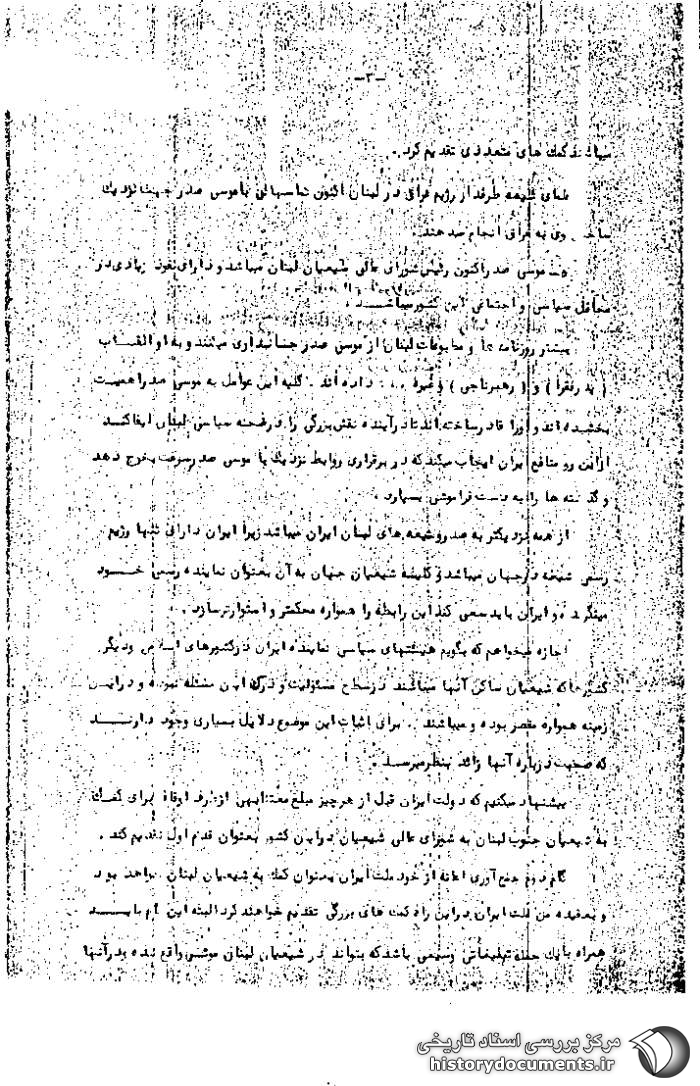 -۳-
میباشند کمک های متعددی تقدیم کرد .
علمای شیعه طرفدار رژیم عراق در لبنان اکنون تماسهائی با موسی صدر جهت نزدیک
وی به عراق انجام میدهند .
موسی صدر اکنون رئیس شورای عالی شیعیان لبنان میباشد و دارای نفوذ زیادی در
محافل سیاسی و اجتماعی این کشور میباشد .
بیشتر روزنامه ها و مطبوعات لبنان از موسی صدر جانبداری میکنند و به او القاب
( پدر فقرا ) و ( رهبر ناجی ) و غیره ... داده اند . کلیه این عوامل به موسی صدر اهمیت
بخشیده اند و او را قادر ساخته اند تا در آینده نقش بزرگی را در صحنه سیاسی لبنان ایفا کند
از این رو منافع ایران ایجاب میکند که در برقراری روابط نزدیک با موسی صدر سرعت بخرج دهد
و گذشته ها را به دست فراموشی بسپارد .
از همه نزدیکتر به صدر و شیعه های لبنان ایران میباشد زیرا ایران دارای تنها رژیم
رسمی شیعه در جهان میباشد و کلیه شیعیان جهان به آن بعنوان نماینده رسمی خود
مینگرند و ایران باید سعی کند این رابطه را همواره محکمتر و استوارتر سازد .
اجازه میخواهم که بگویم هیئتهای سیاسی نماینده ایران در کشورهای اسلامی و دیگر
کشورها که شیعیان ساکن آنها میباشند در سطح مسئولیت و درک این مسئله نبوده و در این
زمینه همواره مقصر بوده و میباشند . برای اثبات این موضوع دلایل بسیاری وجود دارند
که صحبت درباره آنها زائد بنظر میرسد .
پیشنهاد میکنیم که دولت ایران قبل از هر چیز مبلغ معتنابهی از طرف اوقاف برای کمک
به شیعیان جنوب لبنان به شورای عالی شیعیان در این کشور بعنوان قدم اول تقدیم کند .
گام دوم جمع آوری اعانه از خود ملت ایران بعنوان کمک به شیعیان لبنان خواهد بود
و بعقیده من ملت ایران در این راه کمک های بزرگی تقدیم خواهند کرد البته این گام باید
همراه با یک حمله تبلیغاتی وسیعی باشد که بتواند در شیعیان لبنان موثر واقع شده پدر آنها
مرکز بررسی اسناد تاریخی
historydocuments.ir